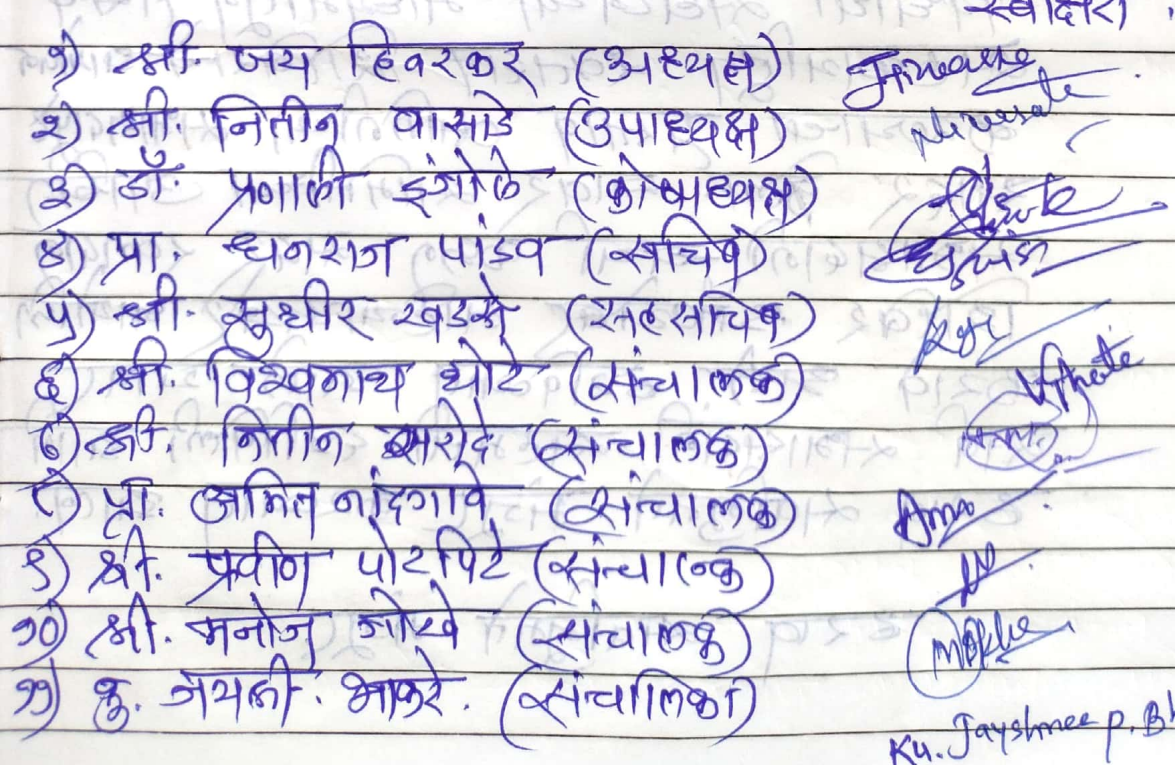 स्वाक्षरी
१) श्री. जय हिवरकर (अध्यक्ष)
२) श्री. नितीन वासाडे (उपाध्यक्ष)
३) डॉ. प्रणाली इंगोले (कोषाध्यक्ष)
४) प्रा. धनराज पांडव (सचिव)
५) श्री. सुधीर खडसे (सहसचिव)
६) श्री. विश्वनाथ थोटे (संचालक) Vthote
७) श्री. नितीन सरोदे (संचालक)
८) प्रा. अमित नांदगावे (संचालक)
९) श्री. प्रवीण पोटपिटे (संचालक)
१०) श्री. मनोज गोखे (संचालक)
११) कु. जयश्री. भाकरे. (संचालिका)
Ku. Jayshree p. Bh